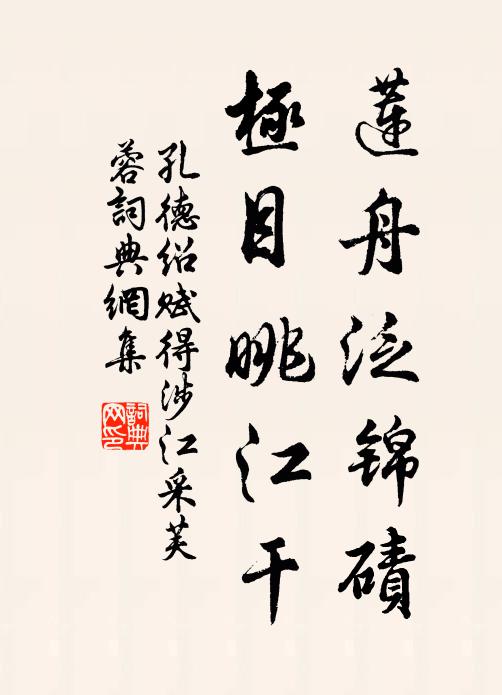 蓮舟泛錦磧
極目眺江干
孔德绍赋得涉江采芙
蓉詞典網集
詞典
网印